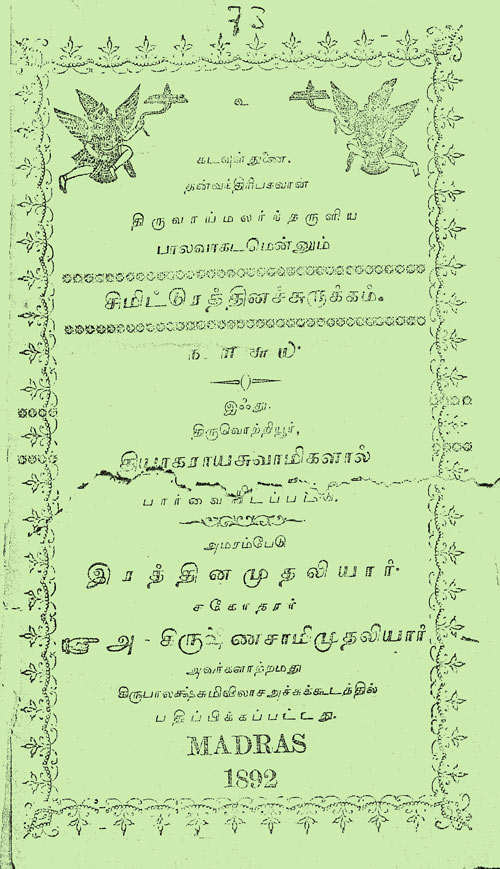 73
உ
கடவுள் துணை.
தன்வந்திரிபகவான்
திருவாய்மலர்ந்தருளிய
பாலவாகடமென்னும்
சுமிட்டுரத்தினச்சுருக்கம்.
இஃது.
திருவொற்றியூர்,
தியாகராயசுவாமிகளால்
பார்வையிடப்பட்டு.
அமரம்பேடு
இரத்தினமுதலியார்.
சகோதரர்
அ - கிருஷ்ணசாமிமுதலியார்
அவர்களாற்றமது
கிருபாலக்ஷ்சுமிவிலாசஅச்சுக்கூடத்தில்
பதிப்பிக்கப்பட்டது.
MADRAS
1892